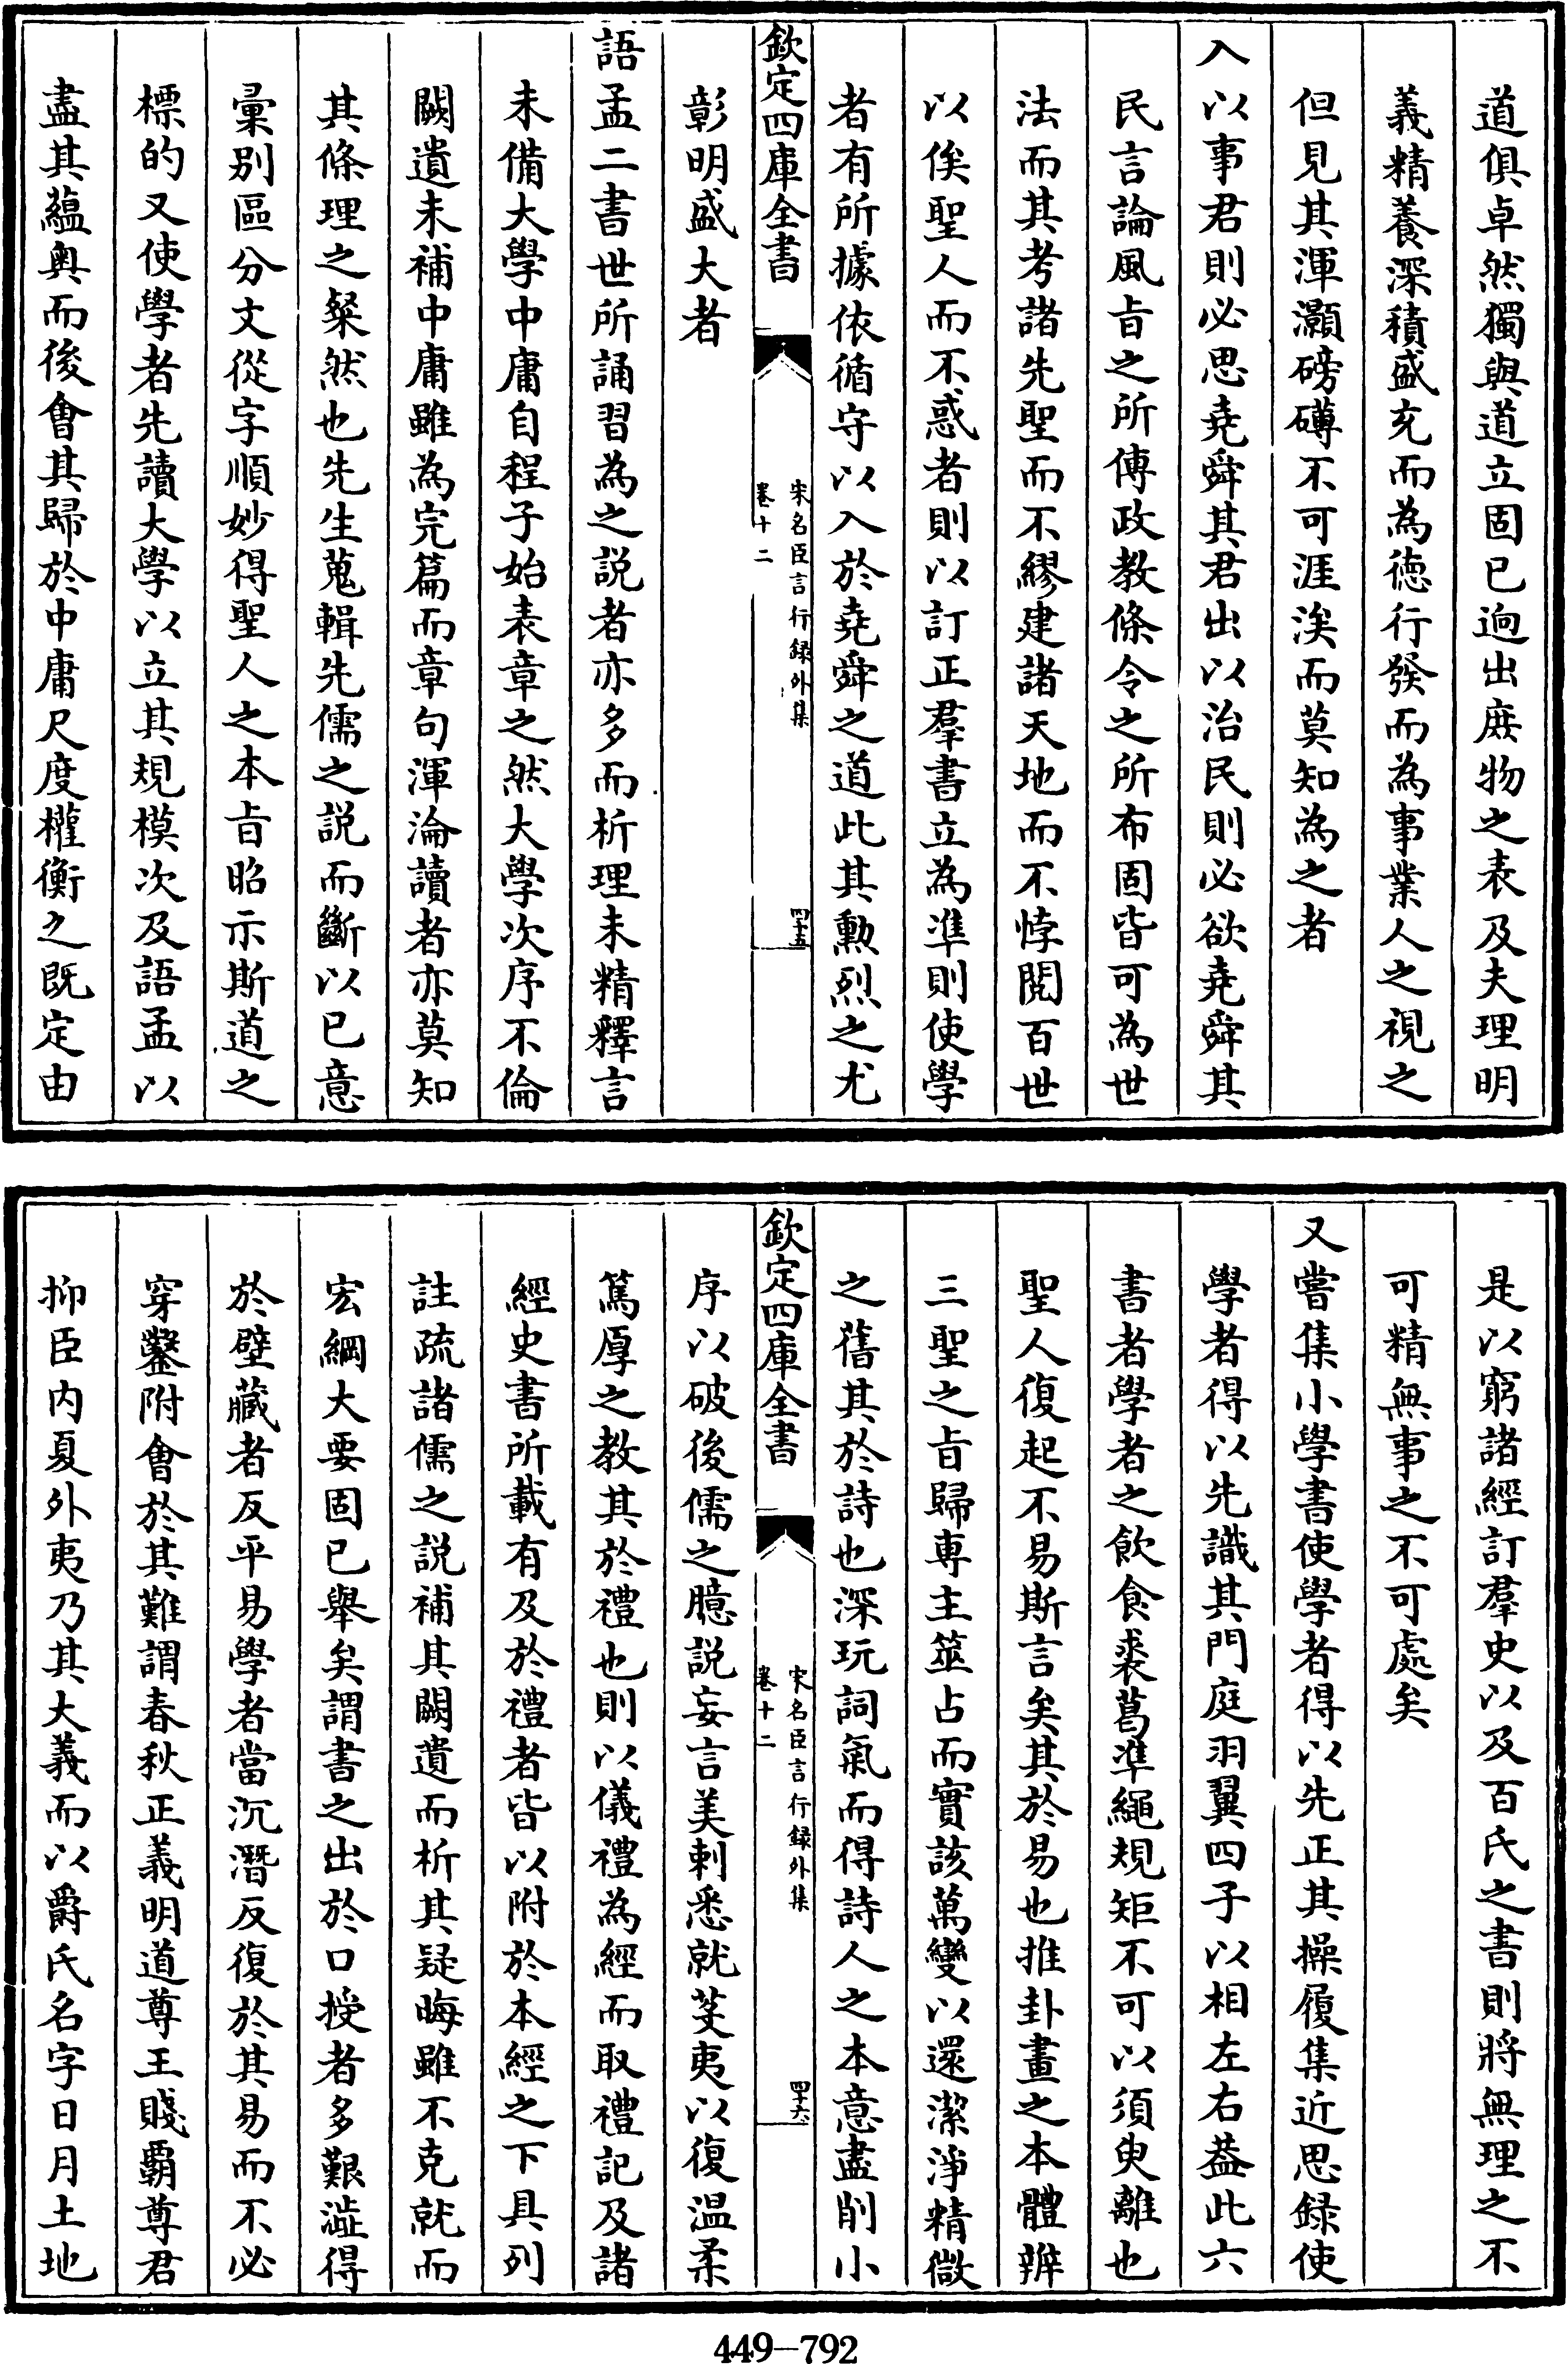 道俱卓然獨與道立固已逈出庻物之表及夫理明
義精養深積盛充而為徳行發而為事業人之視之
但見其渾灝磅礴不可涯涘而莫知為之者
入以事君則必思堯舜其君出以治民則必欲堯舜其
民言論風㫖之所傳政教條令之所布固皆可為世
法而其考諸先聖而不繆建諸天地而不悖閱百世
以俟聖人而不惑者則以訂正羣書立為凖則使學
者有所據依循守以入於堯舜之道此其勲烈之尤
欽定四庫全書
宋名臣言行録外集
卷十二
四十五
彰明盛大者
語孟二書世所誦習為之説者亦多而析理未精釋言
未備大學中庸自程子始表章之然大學次序不倫
闕遺未補中庸雖為完篇而章句渾淪讀者亦莫知
其條理之粲然也先生蒐輯先儒之説而斷以已意
彚别區分文從字順妙得聖人之本㫖昭示斯道之
標的又使學者先讀大學以立其規模次及語孟以
盡其藴奥而後會其歸於中庸尺度權衡之既定由
是以窮諸經訂羣史以及百氏之書則將無理之不
可精無事之不可處矣
又嘗集小學書使學者得以先正其操履集近思録使
學者得以先識其門庭羽翼四子以相左右葢此六
書者學者之飲食裘葛凖繩規矩不可以須臾離也
聖人復起不易斯言矣其於易也推卦畫之本體辨
三聖之㫖歸専主筮占而實該萬變以還潔淨精微
之舊其於詩也深玩詞氣而得詩人之本意盡削小
欽定四庫全書
宋名臣言行録外集
卷十二
四十六
序以破後儒之臆説妄言美刺悉就芟夷以復温柔
篤厚之教其於禮也則以儀禮為經而取禮記及諸
經史書所載有及於禮者皆以附於本經之下具列
註疏諸儒之説補其闕遺而析其疑晦雖不克就而
宏綱大要固已舉矣謂書之出於口授者多艱澁得
於壁藏者反平易學者當沉潛反復於其易而不必
穿鑿附會於其難謂春秋正義明道尊王賤覇尊君
抑臣内夏外夷乃其大義而以爵氏名字日月土地
449—792